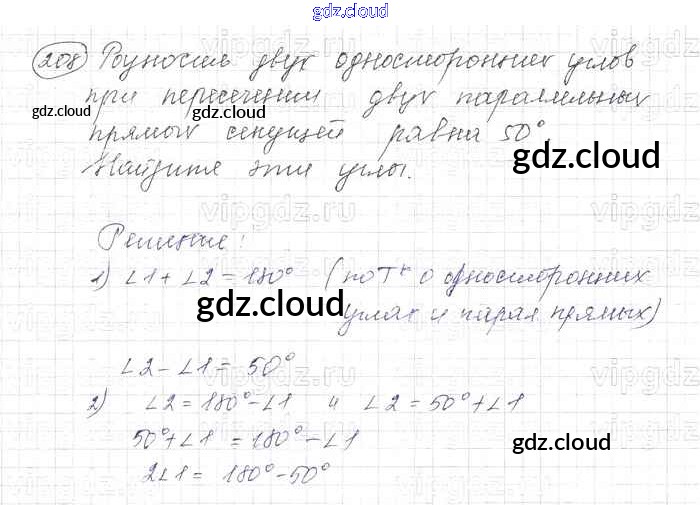 gdz.cloud
208 Разность двух односторонних углов
при пересечении двух параллельных
прямых секущей равна 50°.
Найдите эти углы.
gdz.cloud
gdz.cloud
gdz.cloud
Решение:
1) ∠1 + ∠2 = 180° (по Т о односторонних
углах и парал прямых)
gdz.cloud
∠2 - ∠1 = 50°
2) ∠2 = 180° - ∠1 и ∠2 = 50° + ∠1
50° + ∠1 = 180° - ∠1
2∠1 = 180° - 50°
gdz.cloud
gdz.cloud
vipgdz.ru